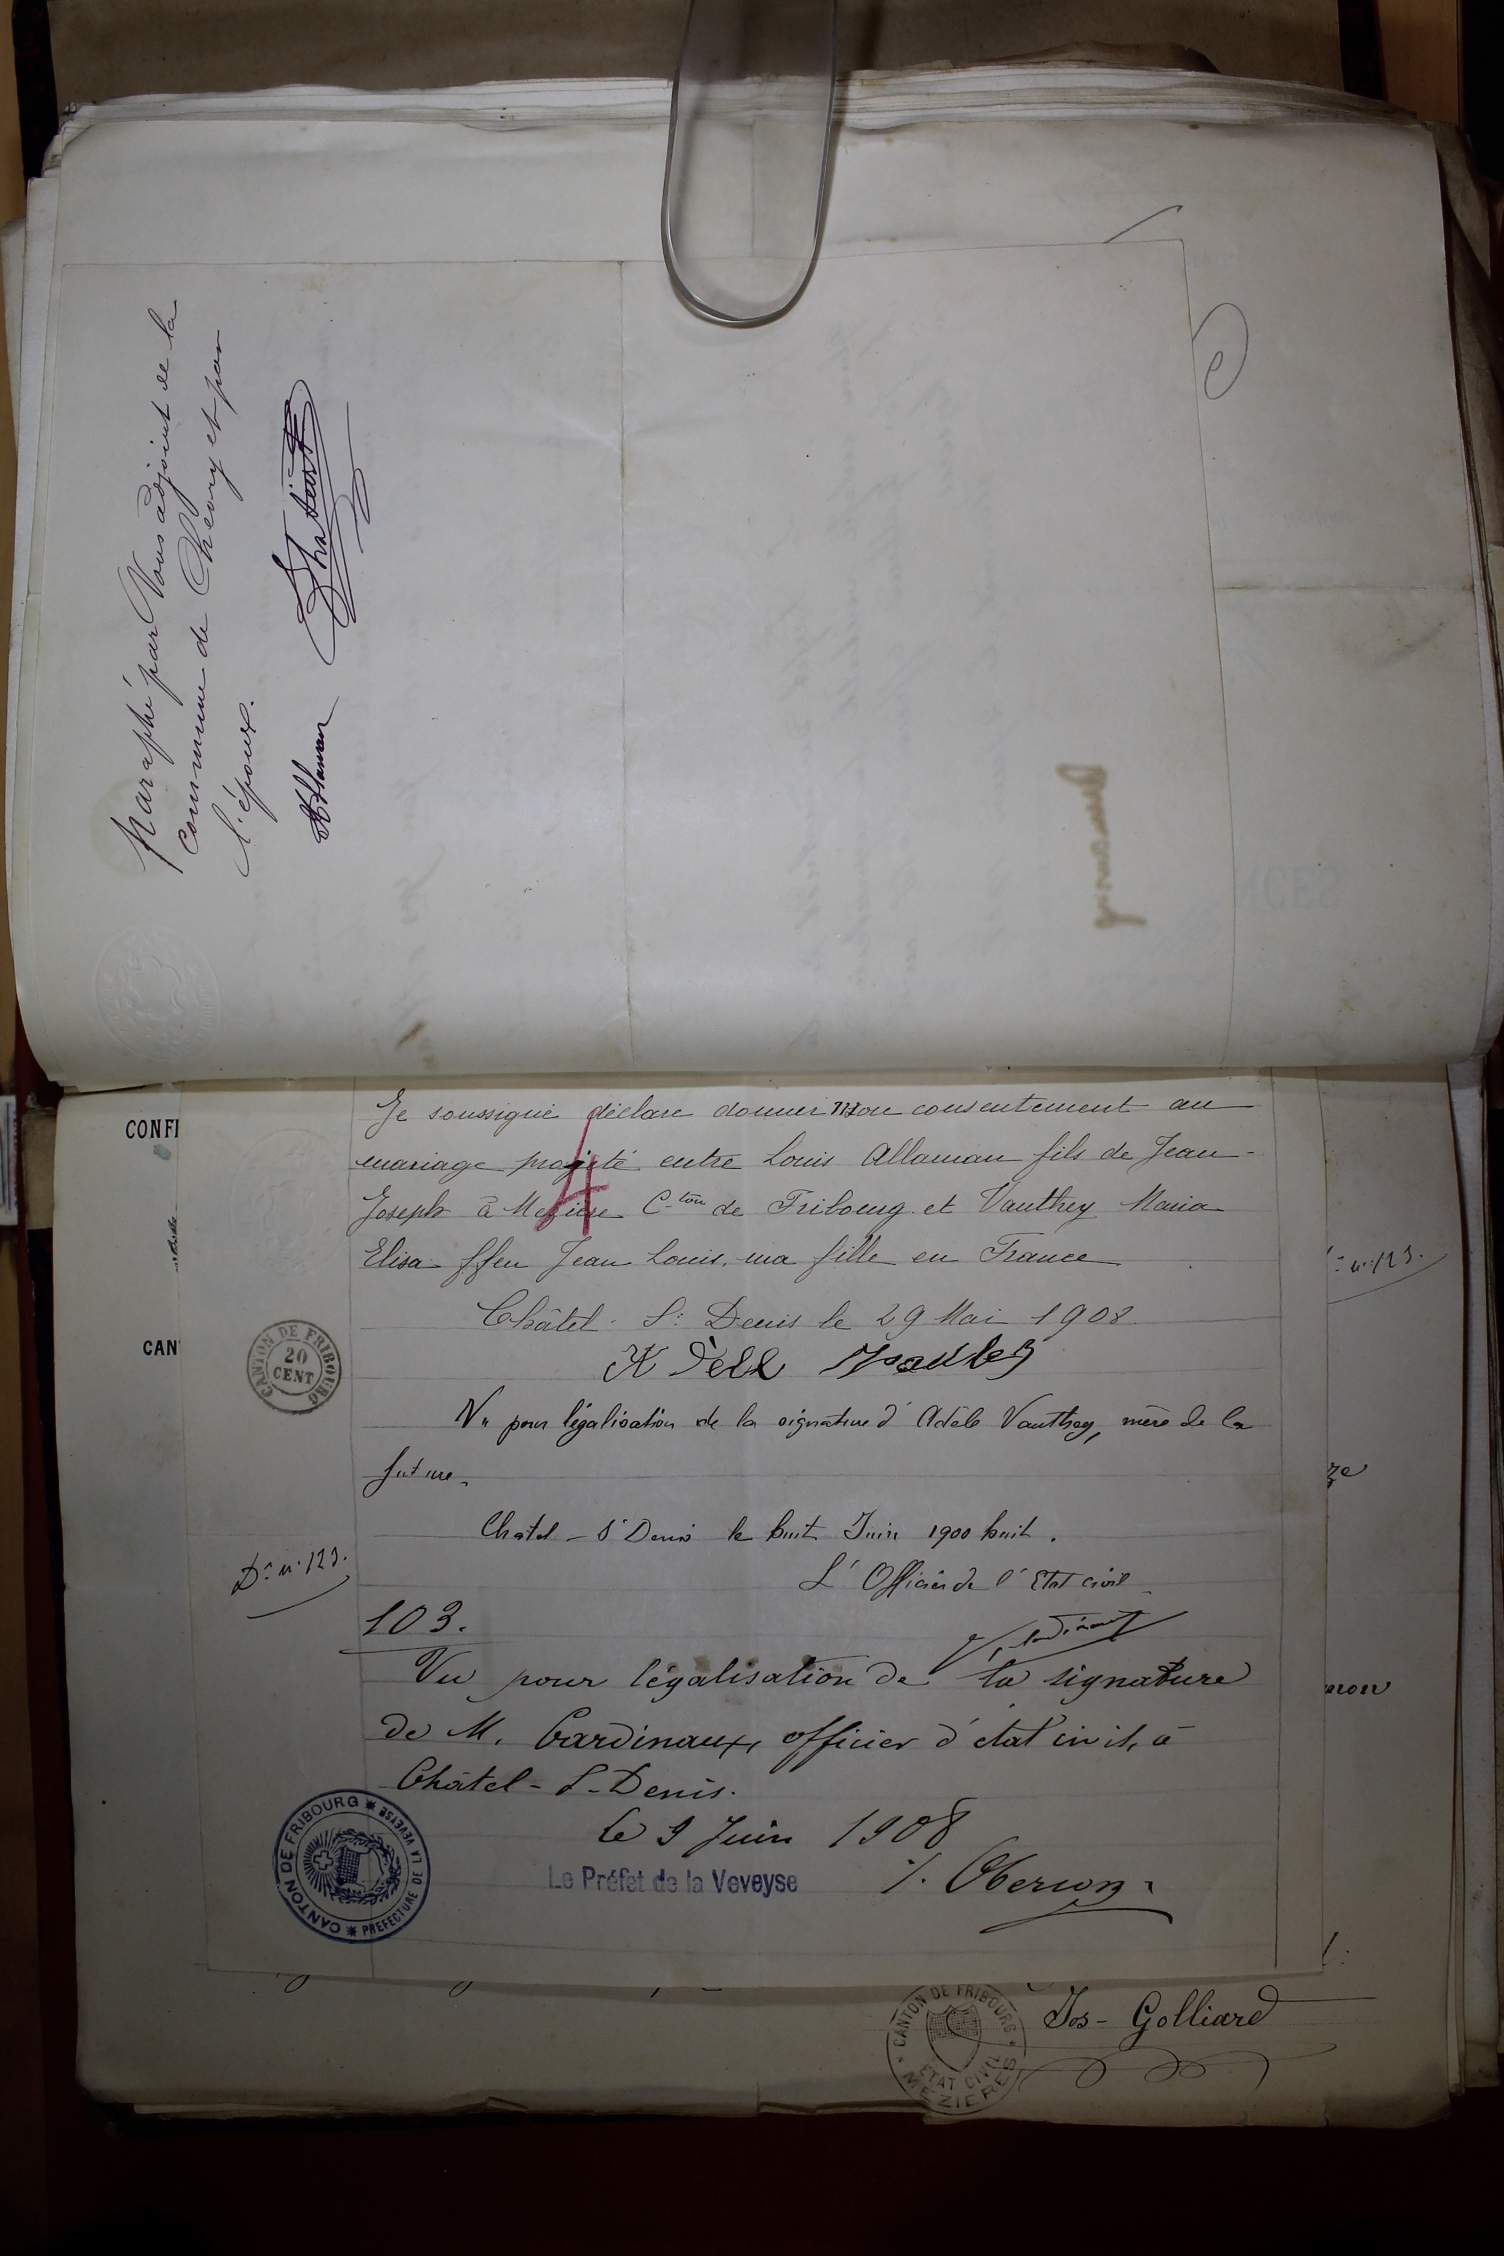 paraphé par Nous adjoint de la
commune de Chevry et par
l'époux.
Allaman
Je soussigné déclare donner mon consentement au
mariage projeté entre Louis Allaman fils de Jean-
Joseph à Mezières C-ton de Fribourg et Vauthey Maria
Elisa ffeu Jean Louis, ma fille en France
Châtel-St Denis le 29 Mai 1908
Vu pour légalisation de la signature d'Adèle Vauthey, mère de la
future.
Chatel-St Denis le huit Juin 1900 huit.
L'Officier de l'Etat civil
103.
Vu pour légalisation de la signature
de M. Cardinaux, officier d'état civil, à
Châtel-S-Denis.
Le 9 Juin 1908
Le Préfet de la Veveyse
CANTON DE FRIBOURG
PREFECTURE DE LA VEVEYSE
CANTON DE FRIBOURG
20
CENT
Dr n. 123.
4
CONFI
CAN
n. 123.
ze
mon
CANTON DE FRIBOURG
ETAT CIVIL
MEZIERES
Jos- Golliard